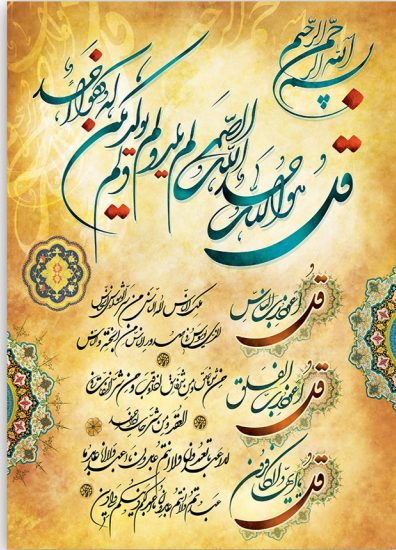 بسم الله الرحمن الرحیم
قل هو الله احد الله الصمد لم یلد ولم یولد ولم یکن له کفوا احد
قل اعوذ برب الناس
ملک الناس اله الناس من شر الوسواس الخناس
الذی یوسوس فی صدور الناس من الجنة والناس
قل اعوذ برب الفلق
من شر ما خلق ومن شر غاسق اذا وقب ومن شر النفاثات فی
العقد ومن شر حاسد اذا حسد
قل یا ایها الکافرون
لا اعبد ما تعبدون ولا انتم عابدون ما اعبد ولا انا عابد ما
عبدتم ولا انتم عابدون ما اعبد لکم دینکم ولی دین